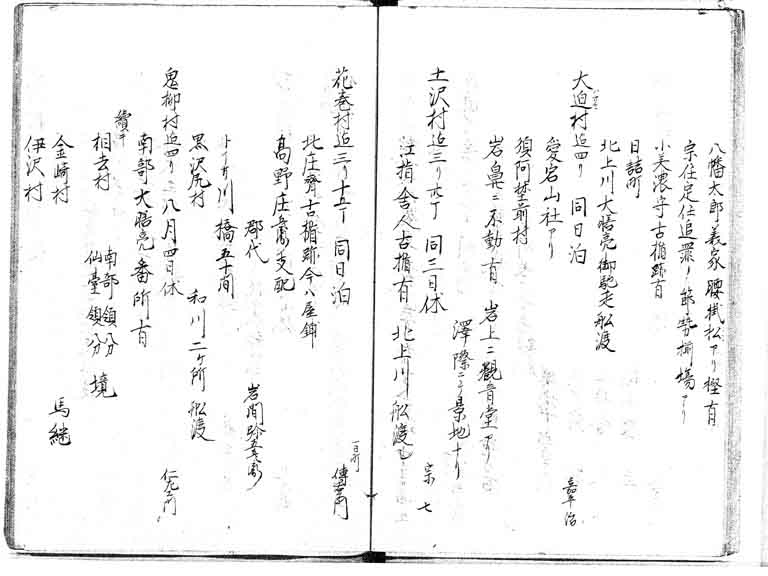 八幡太郎義家腰掛松アリ樫有
宗住定任追罪ノ節勢揃場アリ
小美濃守古楯跡有
日詰町
北上川大膳亮御馳走舩渡
大迫村迠四リ 同日泊
嘉平治
愛宕山社アリ
須阿埜前村
岩鼻ニ不動有 岩上ニ観音堂アリ
澤際ニテ景地ナリ
土沢村迠三リ六丁 同三日休
宗七
江指舎人古楯有 北上川舩渡
花巻村迠三リ十五丁 同日泊
傳右衛門
北庄齊古楯跡今ハ屋鋪
高野庄 支配
郡代
岩間
川橋五十間
黒沢尻村 和川二ケ所舩渡
鬼柳村迠四リ 八月四日休
南部大膳亮番所有
相去村 南部領分 仙臺領分 境
金崎村 馬継
伊沢村